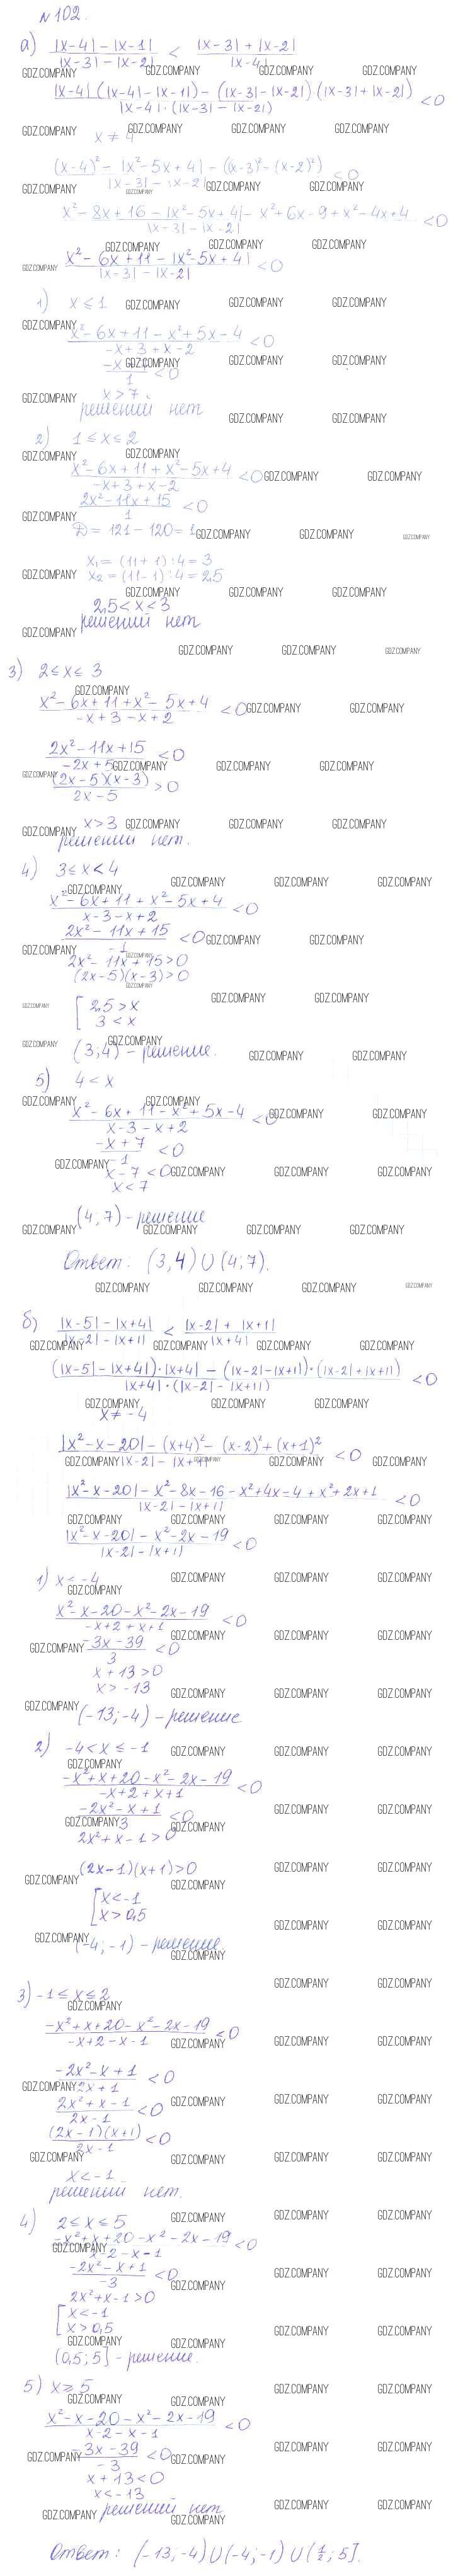 N 102.
а) |x-4| - |x-1| / |x-3| - |x-2| < |x-3| + |x-2| / |x-4|
|x-4| (|x-4| - |x-1|) - (|x-3| - |x-2|) (|x-3| + |x-2|) / |x-4| · (|x-3| - |x-2|) < 0
x ≠ 4
(x-4)² - |x²-5x+4| - ((x-3)² - (x-2)²) / |x-3| - |x-2| < 0
x² - 8x + 16 - |x²-5x+4| - x² + 6x - 9 + x² - 4x + 4 / |x-3| - |x-2| < 0
x² - 6x + 11 - |x²-5x+4| / |x-3| - |x-2| < 0
1) x ≤ 1
x² - 6x + 11 - x² + 5x - 4 / -x + 3 + x - 2 < 0
-x + 7 / 1 < 0
x > 7
решений нет
2) 1 ≤ x ≤ 2
x² - 6x + 11 + x² - 5x + 4 / -x + 3 + x - 2 < 0
2x² - 11x + 15 / 1 < 0
D = 121 - 120 = 1
x₁ = (11 + 1) : 4 = 3
x₂ = (11 - 1) : 4 = 2,5
2,5 < x < 3
решений нет
3) 2 ≤ x ≤ 3
x² - 6x + 11 + x² - 5x + 4 / -x + 3 - x + 2 < 0
2x² - 11x + 15 / -2x + 5 < 0
(2x-5)(x-3) / 2x-5 > 0
x > 3
решений нет.
4) 3 ≤ x < 4
x² - 6x + 11 + x² - 5x + 4 / x - 3 - x + 2 < 0
2x² - 11x + 15 / -1 < 0
2x² - 11x + 15 > 0
(2x-5)(x-3) > 0
[ 2,5 > x
3 < x
(3; 4) - решение.
5) 4 < x
x² - 6x + 11 - x² + 5x - 4 / x - 3 - x + 2 < 0
-x + 7 / -1 < 0
x - 7 < 0
x < 7
(4; 7) - решение
Ответ: (3; 4) ∪ (4; 7).
б) |x-5| - |x+4| / |x-2| - |x+1| < |x-2| + |x+1| / |x+4|
(|x-5| - |x+4|) · |x+4| - (|x-2| - |x+1|) · (|x-2| + |x+1|) / |x+4| · (|x-2| - |x+1|) < 0
x ≠ -4
|x²-x-20| - (x+4)² - (x-2)² + (x+1)² / |x-2| - |x+1| < 0
|x²-x-20| - x² - 8x - 16 - x² + 4x - 4 + x² + 2x + 1 / |x-2| - |x+1| < 0
|x²-x-20| - x² - 2x - 19 / |x-2| - |x+1| < 0
1) x < -4
x² - x - 20 - x² - 2x - 19 / -x + 2 + x + 1 < 0
-3x - 39 / 3 < 0
x + 13 > 0
x > -13
(-13; -4) - решение
2) -4 < x ≤ -1
-x² + x + 20 - x² - 2x - 19 / -x + 2 + x + 1 < 0
-2x² - x + 1 / 3 < 0
2x² + x - 1 > 0
(2x-1)(x+1) > 0
[ x < -1
x > 0,5
(-4; -1) - решение
3) -1 ≤ x ≤ 2
-x² + x + 20 - x² - 2x - 19 / -x + 2 - x - 1 < 0
-2x² - x + 1 / 2x + 1 < 0
2x² + x - 1 / 2x - 1 < 0
(2x-1)(x+1) / 2x-1 < 0
x < -1
решений нет.
4) 2 ≤ x ≤ 5
-x² + x + 20 - x² - 2x - 19 / x - 2 - x - 1 < 0
-2x² - x + 1 / -3 < 0
2x² + x - 1 > 0
[ x < -1
x > 0,5
(0,5; 5] - решение.
5) x ≥ 5
x² - x - 20 - x² - 2x - 19 / x - 2 - x - 1 < 0
-3x - 39 / -3 < 0
x + 13 < 0
x < -13
решений нет
Ответ: (-13; -4) ∪ (-4; -1) ∪ (1/2; 5].